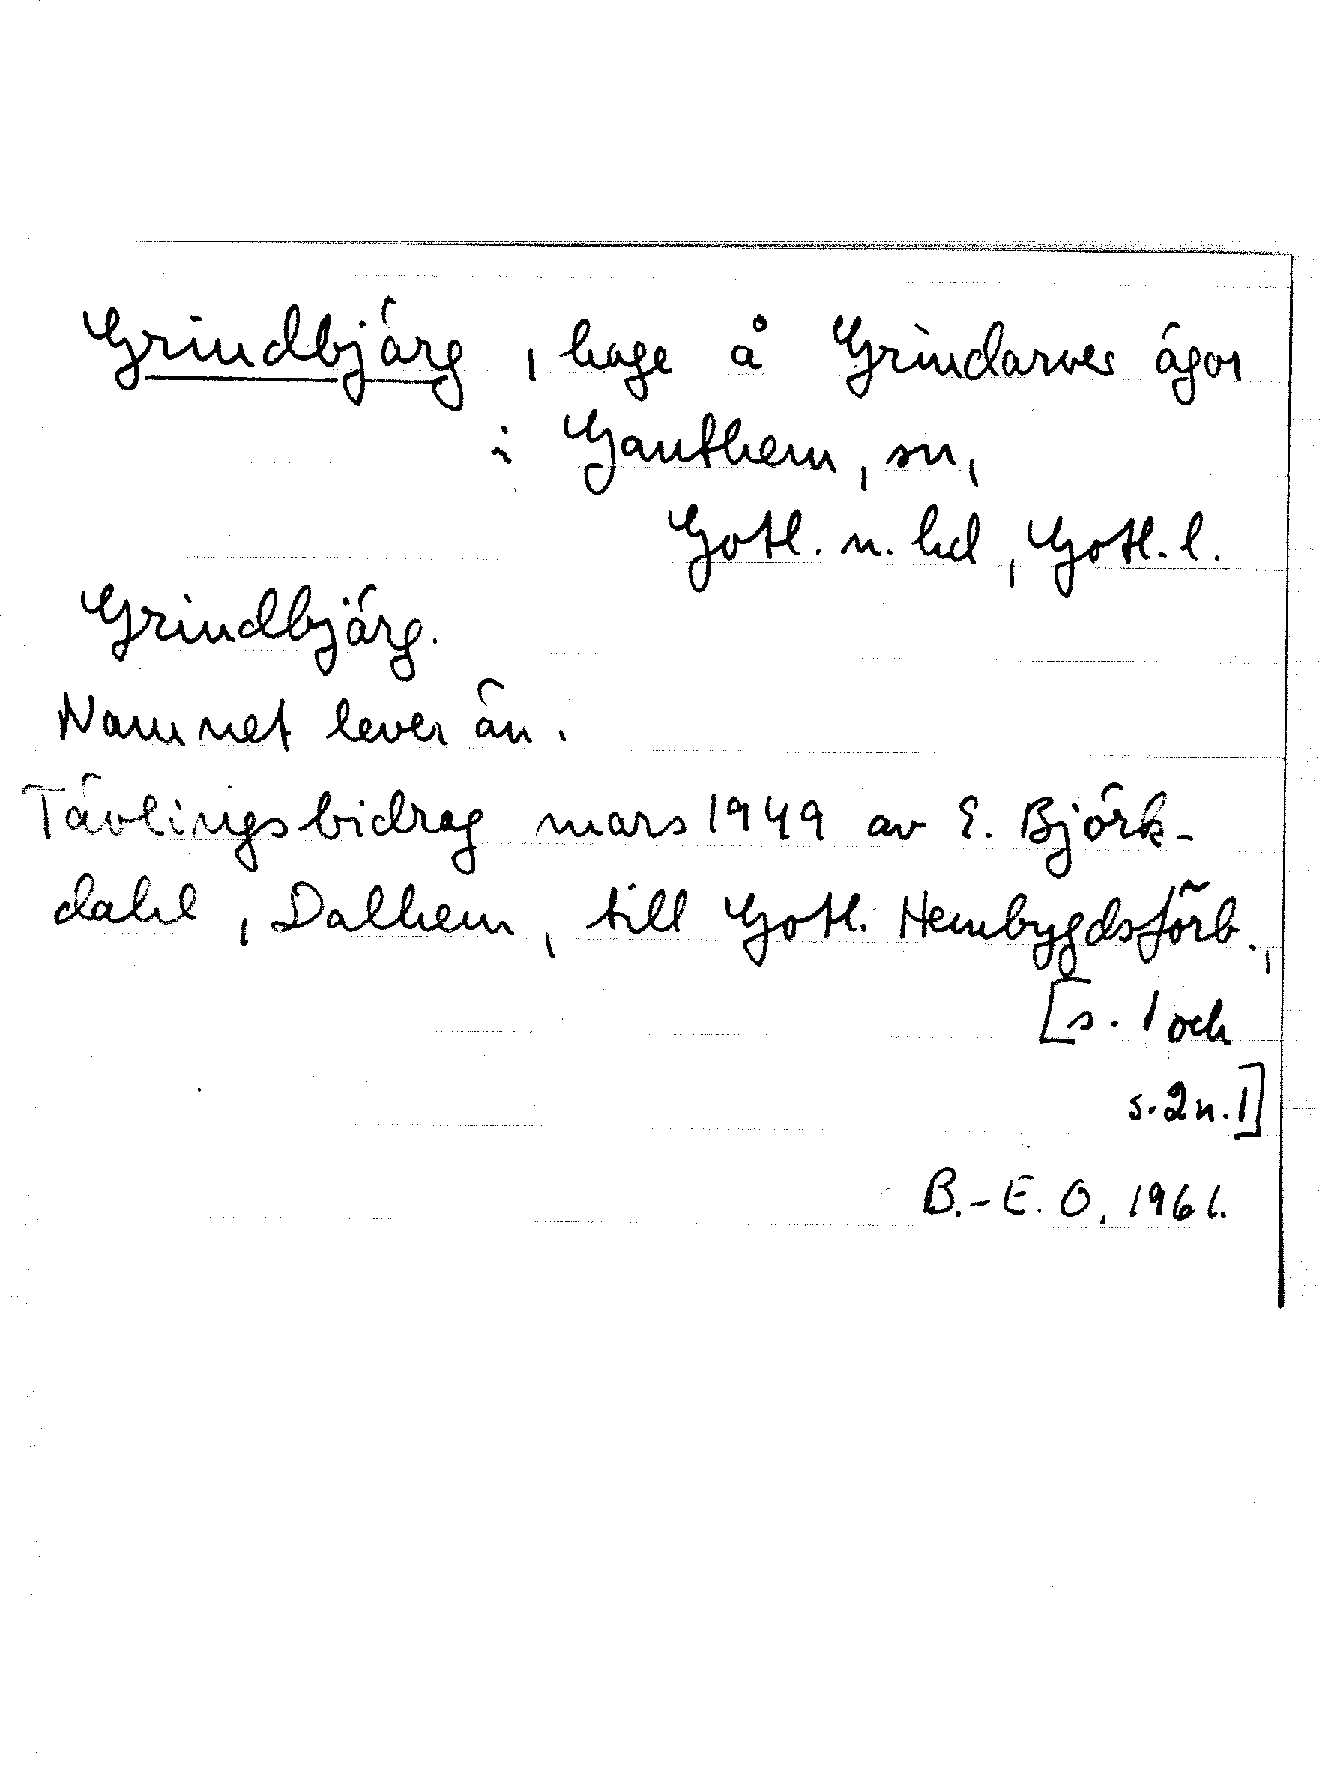 Grindbjärg, hage å Grindarves ägor
i Ganthem, sn,
Gotl. n. hd, Gotl. l.
Grindbjärg.
Namnet lever än.
Tävlingsbidrag mars 1949 av E. Björk-
dahl, Dalhem, till Gotl. Hembygdsförb.,
[s. 1 och
s. 2 n. 1]
B.-E. O, 1961.